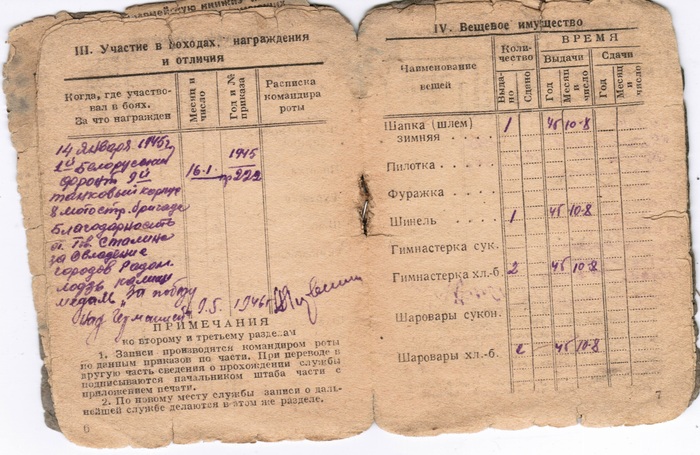 III. Участие в походах, награждения
и отличия
Когда, где участво-
вал в боях.
За что награжден
Месяц и
число
Год и №
приказа
Расписка
командира
роты
14 января 1945г
1й Белорусский
фронт 9й
танковый корпус
8 мотостр. бригада
Благодарность
т. Сталина
за овладение
городов Радом
лодзь
медаль "За победу
над Германией"
16.1
1945
пр 222
9.5.
1946г
ПРИМЕЧАНИЯ
ко второму и третьему разделам
1. Записи производятся командиром роты
по данным приказов по части. При переводе в
другую часть сведения о прохождении службы
подписываются начальником штаба части с
приложением печати.
2. По новому месту службы записи о даль-
нейшей службе делаются в этом же разделе.
6
IV. Вещевое имущество
Наименование
вещей
Коли-
чество
Выда-
но
Сдано
ВРЕМЯ
Выдачи
Сдачи
Год
Месяц
и
число
Год
Месяц
и число
Шапка (шлем)
зимняя . . . 1 46 10-8
Пилотка . . . .
Фуражка . . . .
Шинель . . . . 1 46 10-8
Гимнастерка сук.
Гимнастерка хл.-б. 2 46 10-8
Шаровары сукон.
Шаровары хл.-б. 2 46 10-8
7